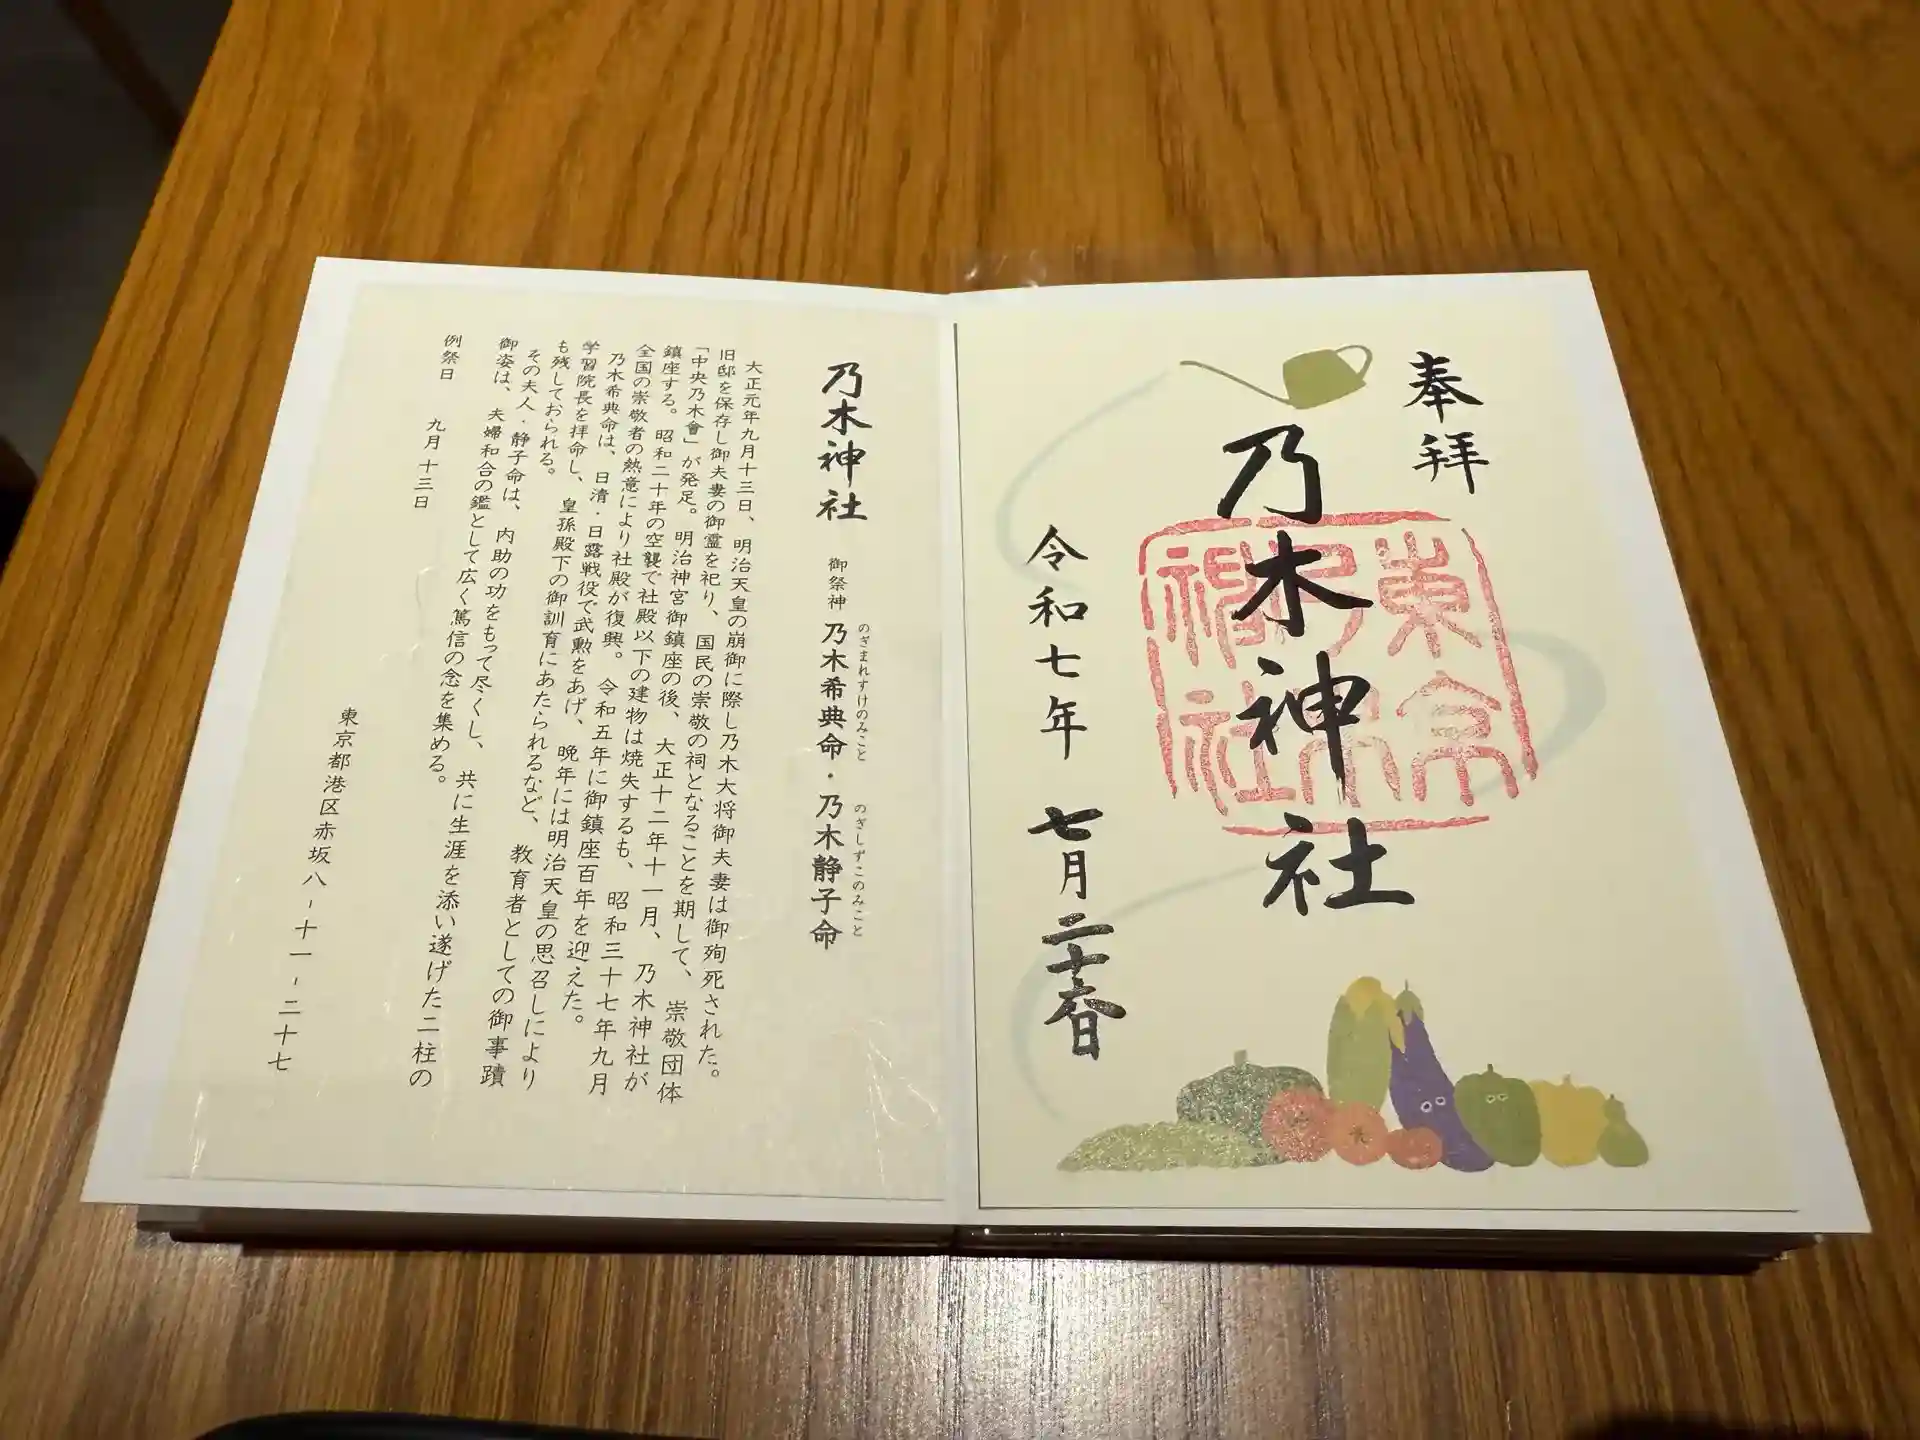 奉拝
乃木神社
東京
乃木
神社
令和七年 七月二十六日
乃木神社 御祭神 乃木希典命・乃木静子命
のぎまれすけのみこと のぎしずこのみこと
大正元年九月十三日、明治天皇の崩御に際し乃木大将御夫妻は御殉死された。
旧邸を保存し御夫妻の御霊を祀り、国民の崇敬の祠となることを期して、崇敬団体
「中央乃木會」が発足。明治神宮御鎮座の後、大正十二年十一月、乃木神社が
鎮座する。昭和二十年の空襲で社殿以下の建物は焼失するも、昭和三十七年九月
全国の崇敬者の熱意により社殿が復興。令和五年に御鎮座百年を迎えた。
乃木希典命は、日清・日露戦役で武勲をあげ、晩年には明治天皇の思召しにより
学習院長を拝命し、皇孫殿下の御訓育にあたられるなど、教育者としての御事蹟
も残しておられる。
その夫人・静子命は、内助の功をもって尽くし、共に生涯を添い遂げた二柱の
御姿は、夫婦和合の鑑として広く篤信の念を集める。
例祭日 九月十三日
東京都港区赤坂八-十一-二十七